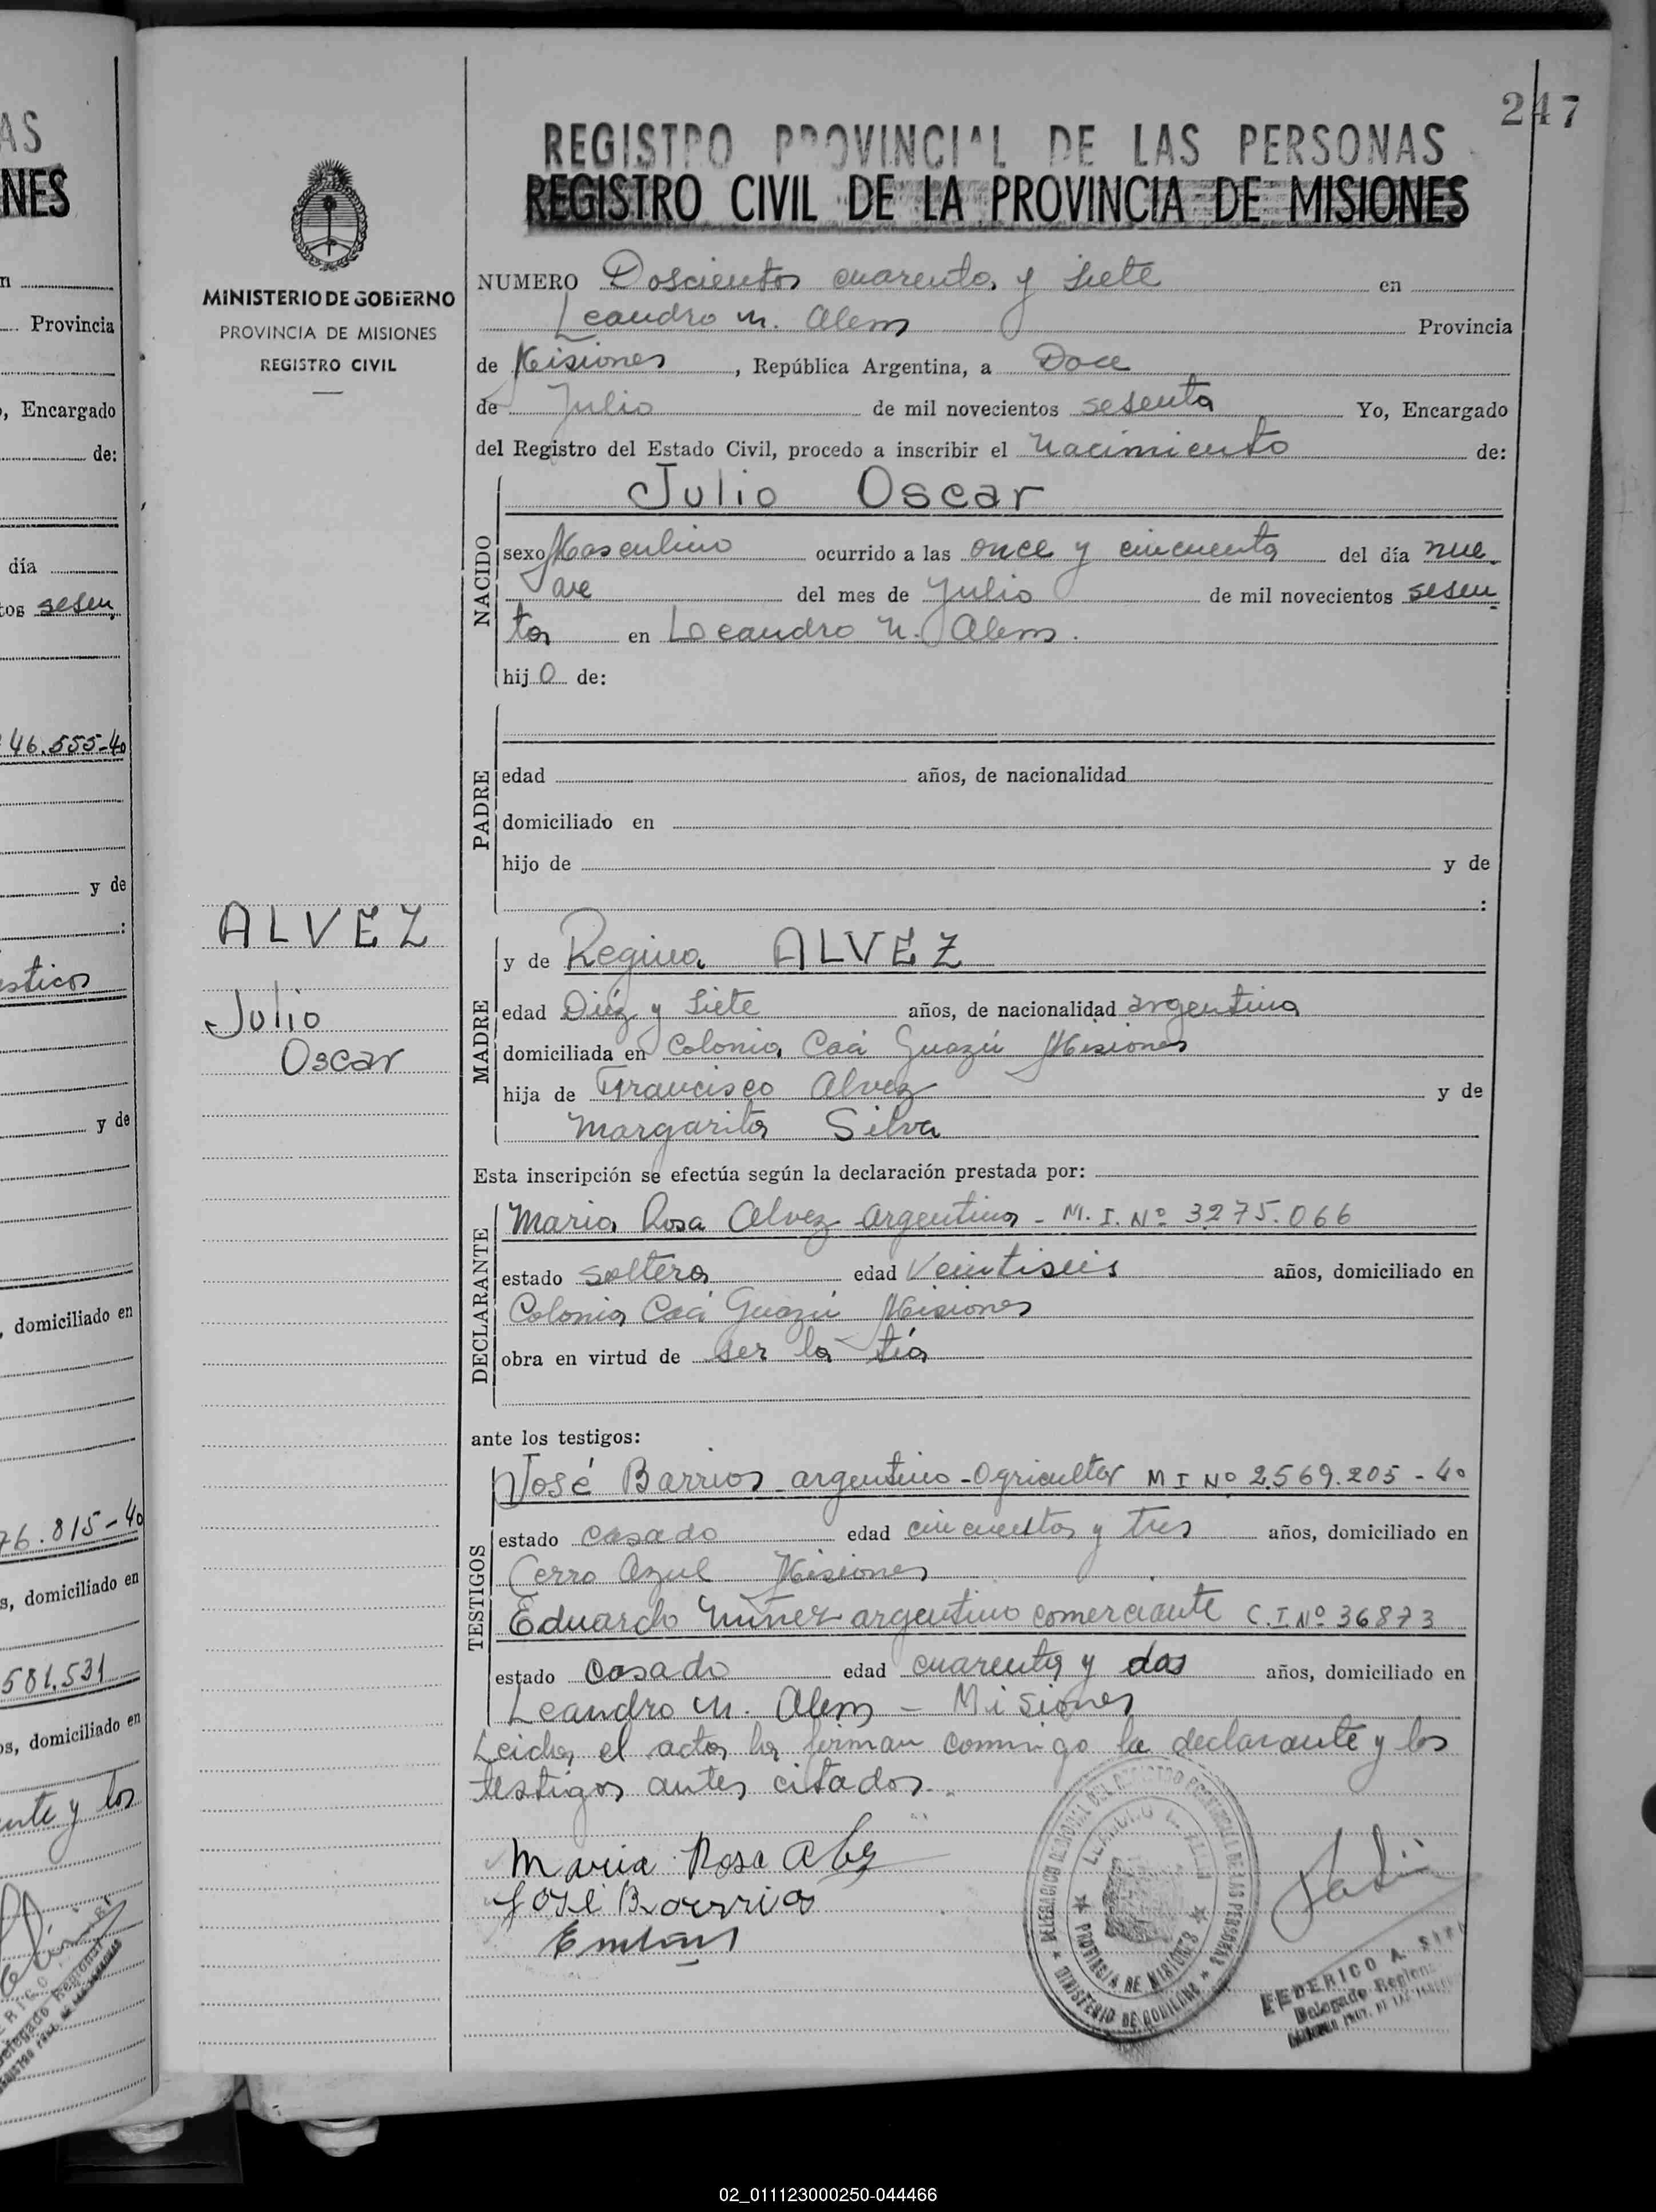 AS
NES
n
Provincia
, Encargado
de:
día
tos sesen
46.555-40
y de
:
ésticos
y de
, domiciliado en
76.815-40
s, domiciliado en
581.531
os, domiciliado en
ante y los
Delegado Regional
MINISTERIO DE GOBIERNO
PROVINCIA DE MISIONES
REGISTRO CIVIL
ALVEZ
Julio
Oscar
247
REGISTRO PROVINCIAL DE LAS PERSONAS
REGISTRO CIVIL DE LA PROVINCIA DE MISIONES
NUMERO Doscientos cuarenta y siete en
Leandro N. Alem Provincia
de Misiones, República Argentina, a Doce
de Julio de mil novecientos sesenta Yo, Encargado
del Registro del Estado Civil, procedo a inscribir el nacimiento de:
NACIDO
Julio Oscar
sexo Masculino ocurrido a las once y cincuenta del día nue
ve del mes de Julio de mil novecientos sesen
ta en Leandro N. Alem.
hijo de:
PADRE
edad años, de nacionalidad
domiciliado en
hijo de y de
:
MADRE
y de Regina ALVEZ
edad Diez y siete años, de nacionalidad argentina
domiciliada en Colonia Caá Guazú Misiones
hija de Francisco Alvez y de
Margarita Silva
Esta inscripción se efectúa según la declaración prestada por:
DECLARANTE
Maria Rosa Alvez argentina - M. I. Nº 3275.066
estado soltera edad Veintiseis años, domiciliado en
Colonia Caá Guazú Misiones
obra en virtud de ser la tía
ante los testigos:
TESTIGOS
José Barrios argentino - Agricultor M I Nº 2.569.205 - 40
estado casado edad cincuenta y tres años, domiciliado en
Cerro Azul Misiones
Eduardo Nuñez argentino comerciante C. I. Nº 36873
estado casado edad cuarenta y dos años, domiciliado en
Leandro N. Alem - Misiones
Leida el acta la firman conmigo la declarante y los
testigos antes citados.
Maria Rosa Alvez
José Barrios
LEANDRO N. ALEM
PROVINCIA DE MISIONES
MINISTERIO DE GOBIERNO
FEDERICO A.
Delegado Regional
02_011123000250-044466